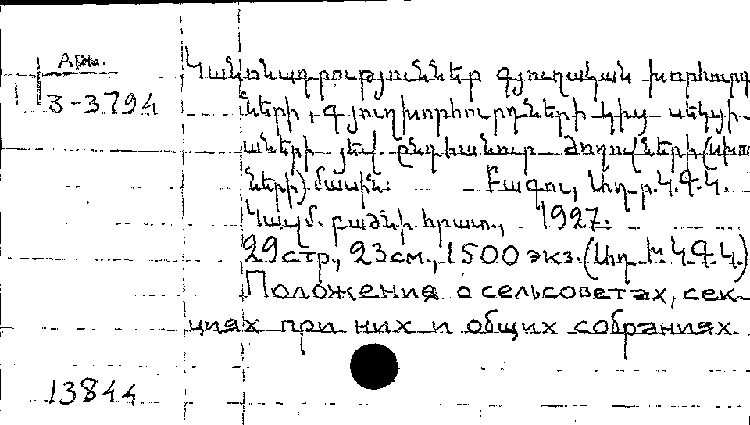 Арм.
Կանոնադրություններ գյուղական խորհուրդ
3-3794
ների, գյուղխորհուրդների կից սեկցի-
աների յեվ ընդհանուր ժողովների (սխոդ
ների) մասին: Բագու, Ադր.Կ.Գ.Կ.
Կազմ. բաժնի հրատ., 1927.
29 стр., 23 см., 1500 экз. (Ադր. Կ.Գ.Կ.)
Положения о сельсоветах, сек-
циях при них и общих собраниях.
13844